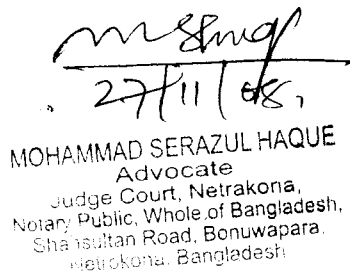 27/11/08,
MOHAMMAD SERAZUL HAQUE
Advocate
Judge Court, Netrakona,
Notary Public, Whole of Bangladesh,
Shahsultan Road, Bonuwapara,
Netrokona, Bangladesh